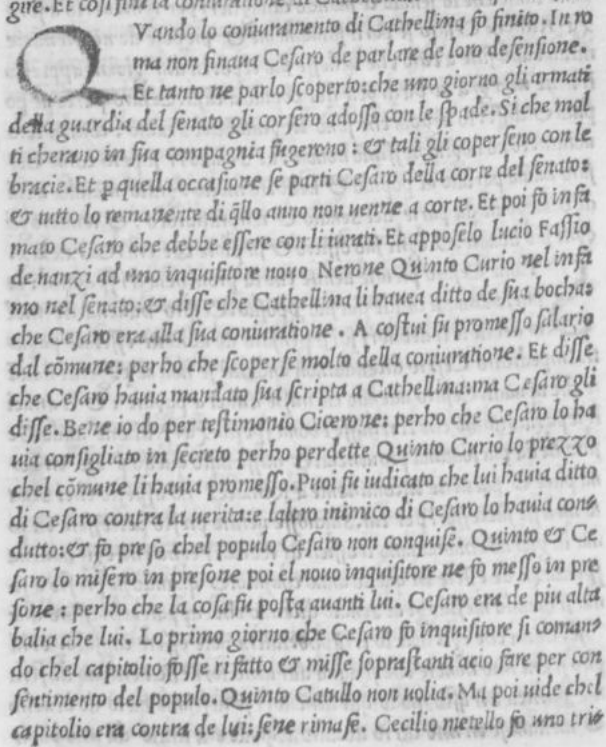 gire. Et cosi fini la coniuratione, di
QVando lo coniuramento di Cathellina fo finito. In ro
ma non finaua Cesaro de parlare de loro defensione.
Et tanto ne parlo scoperto: che uno giorno gli armati
della guardia del senato gli corsero adosso con le spade. Si che mol
ti cherano in sua compagnia fugerono : & tali gli coperseno con le
bracie. Et p quella occasione se parti Cesaro della corte del senato:
& tutto lo remanente di q̃llo anno non uenne a corte. Et poi fo infa
mato Cesaro che debbe essere con li iurati. Et apposelo lucio Fassio
de nanzi ad uno inquisitore nouo Nerone Quinto Curio nel infa
mo nel senato: & disse che Cathellina li hauea ditto de sua bocha:
che Cesaro era alla sua coniuratione . A costui fu promesso salario
dal cõmune: perho che scoperse molto della coniuratione. Et disse
che Cesaro hauia mandato sua scripta a Cathellina: ma Cesaro gli
disse. Bene io do per testimonio Cicerone: perho che Cesaro lo ha
uia consigliato in secreto perho perdette Quinto Curio lo prezzo
chel cõmune li hauia promesso. Puoi fu iudicato che lui hauia ditto
di Cesaro contra la uerita: e laltro inimico di Cesaro lo hauia con=
dutto: & fo preso chel populo Cesaro non conquise. Quinto & Ce
saro lo misero in presone poi el nouo inquisitore ne fo messo in pre
sone : perho che la cosa fu posta auanti lui. Cesaro era de piu alta
balia che lui. Lo primo giorno che Cesaro fo inquisitore si coman=
do chel capitolio fosse rifatto & misse soprastanti acio fare per con
sentimento del populo. Quinto Catullo non uolia. Ma poi uide chel
capitolio era contra de lui: sene rimase. Cecilio metello fo uno tri=